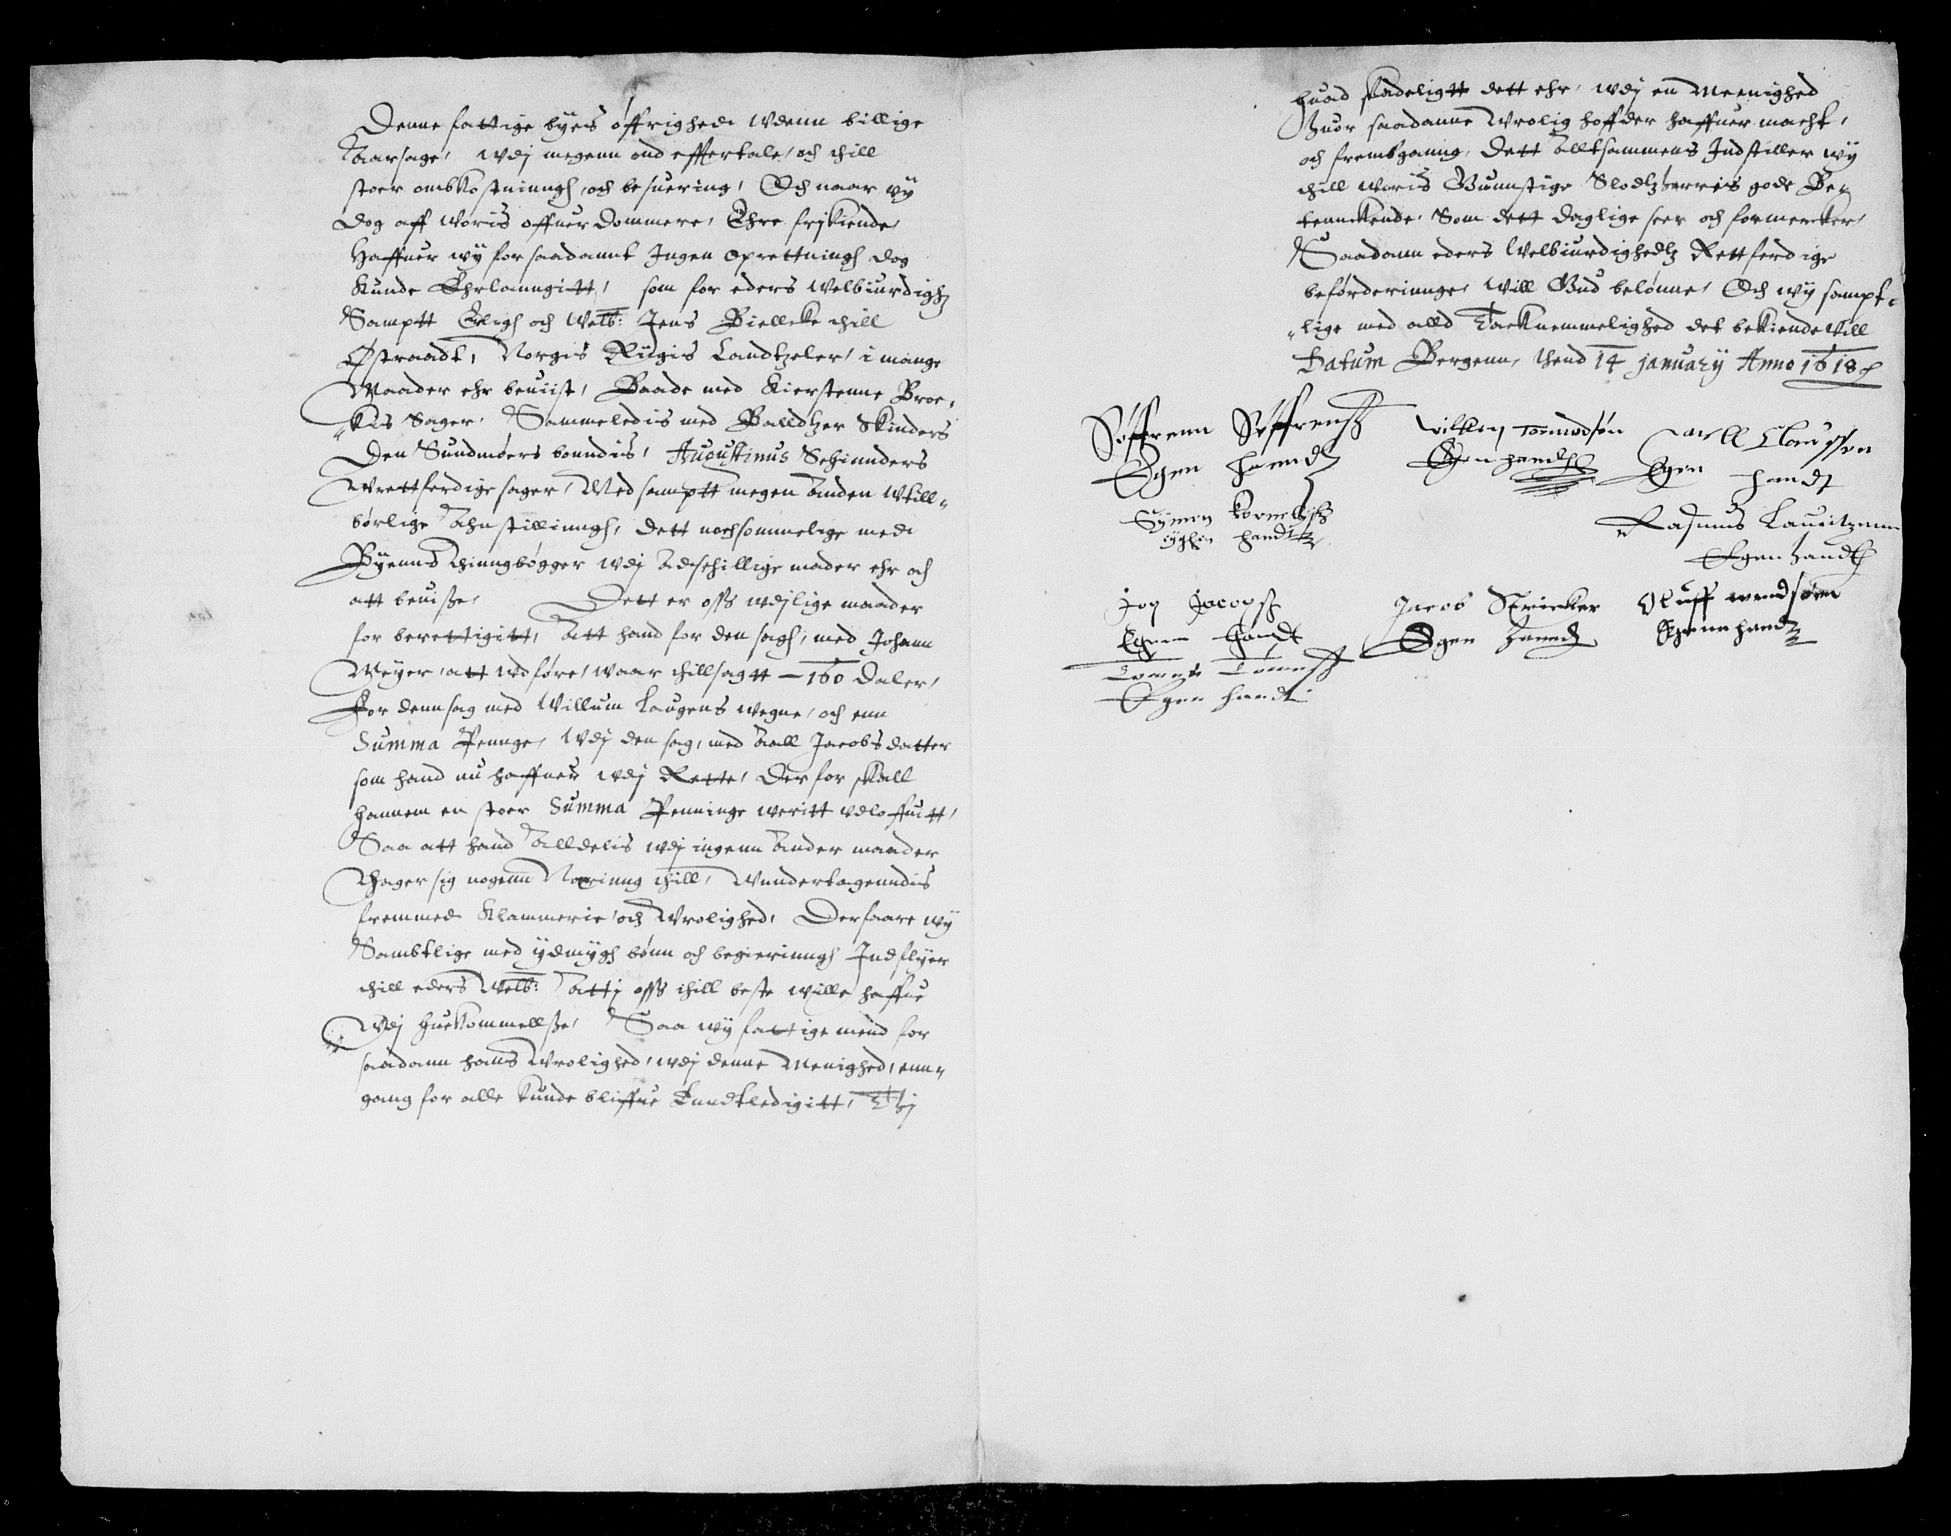 Denne fattige byes øffrighed wdenn billige
Aarsage, wdj megenn ond effertale, och thill
stoer ombkostninngh, och besuering, Och naar wy
dog aff woris offuer dommere, Ehre frjkiende,
Haffuer wy for saadannt Ingen oprettningh dog
kunde Ehrlanngitt, som for eders welbiurdighz
Samptt Erligh och Welb: Jens Bielleke thill
Østraadt, Norgis Riigis Landtzeler, i mange
Maader ehr beuiist, Baade med Kierstenne Broe-
kis Sager, Sammeledis med Balldtzer Skinders
Den Sundmøers bonndis, Augustinus Schinnders
Wrettferdige sager, Med samptt megen Anden Wtill-
børlige Ahnstillinngh, dett nochsommelige med
Byenns thinngbøgger wdj Adschillige mader ehr och
att beuise, Dett er oss wdjlige maader
for berettigitt, Att hand for den sagh, med Johann
Meyer, att wdføre, waar thillsagtt - 160 daler,
For denn sag med Willum Laugens wegne, och enn
Summa Penge, wdj den sag, med Aall Jacobs datter
som hand nu haffuer wdj Rette, Der for skall
hannem en stoer Summa Penninge weritt vdloffuitt,
Saa att hand Alldelis wdj ingenn Ander maader
thager sig nogenn Næring thill, Wundertagenndis
fremmed Klammerie, och Wrolighed, Derfaare wy
Sambtlige med ydmygh bønn och begierinngh Indflyer
thill eders Welb: Attj oss thill beste wille haffue
Wdj huekommellse, Saa wy fattige mend for
saadann hans Wrolighed, wdj denne Menighed, enn-
gang for alle kunde bliffue Enndtledigitt, Thj
huad skadeligtt dett ehr, wdj en Meenighed
huor saadanne Wrolig hoffder haffuer macht,
och fremtganng, Dett Alltsammens Indstiller wy
thill woris Gunnstige Slodtzherris gode Be-
tennckende, Som dett daglige seer och formercker,
Saadann eders Welbiurdighedtz Rettferdige
beførderinnge, will Gud belønne, Och wy sampt-
lige med alld Tacknemmelighed det bekiende will
Datum Bergenn, thend 14 january Anno 1618
Søffrenn Søffrensz
Egen haannd
Willem Tormodsøn
Egen handt
Claussen
Egen handt
Symen Kornelisz
eyghen handt
Rasmus Lauritzenn
Egen handt
Jop Jacopsz
Egen handt
Jacob Stricker
Egen haand
Oluff wendsøn
Egenn hand
Egen handt